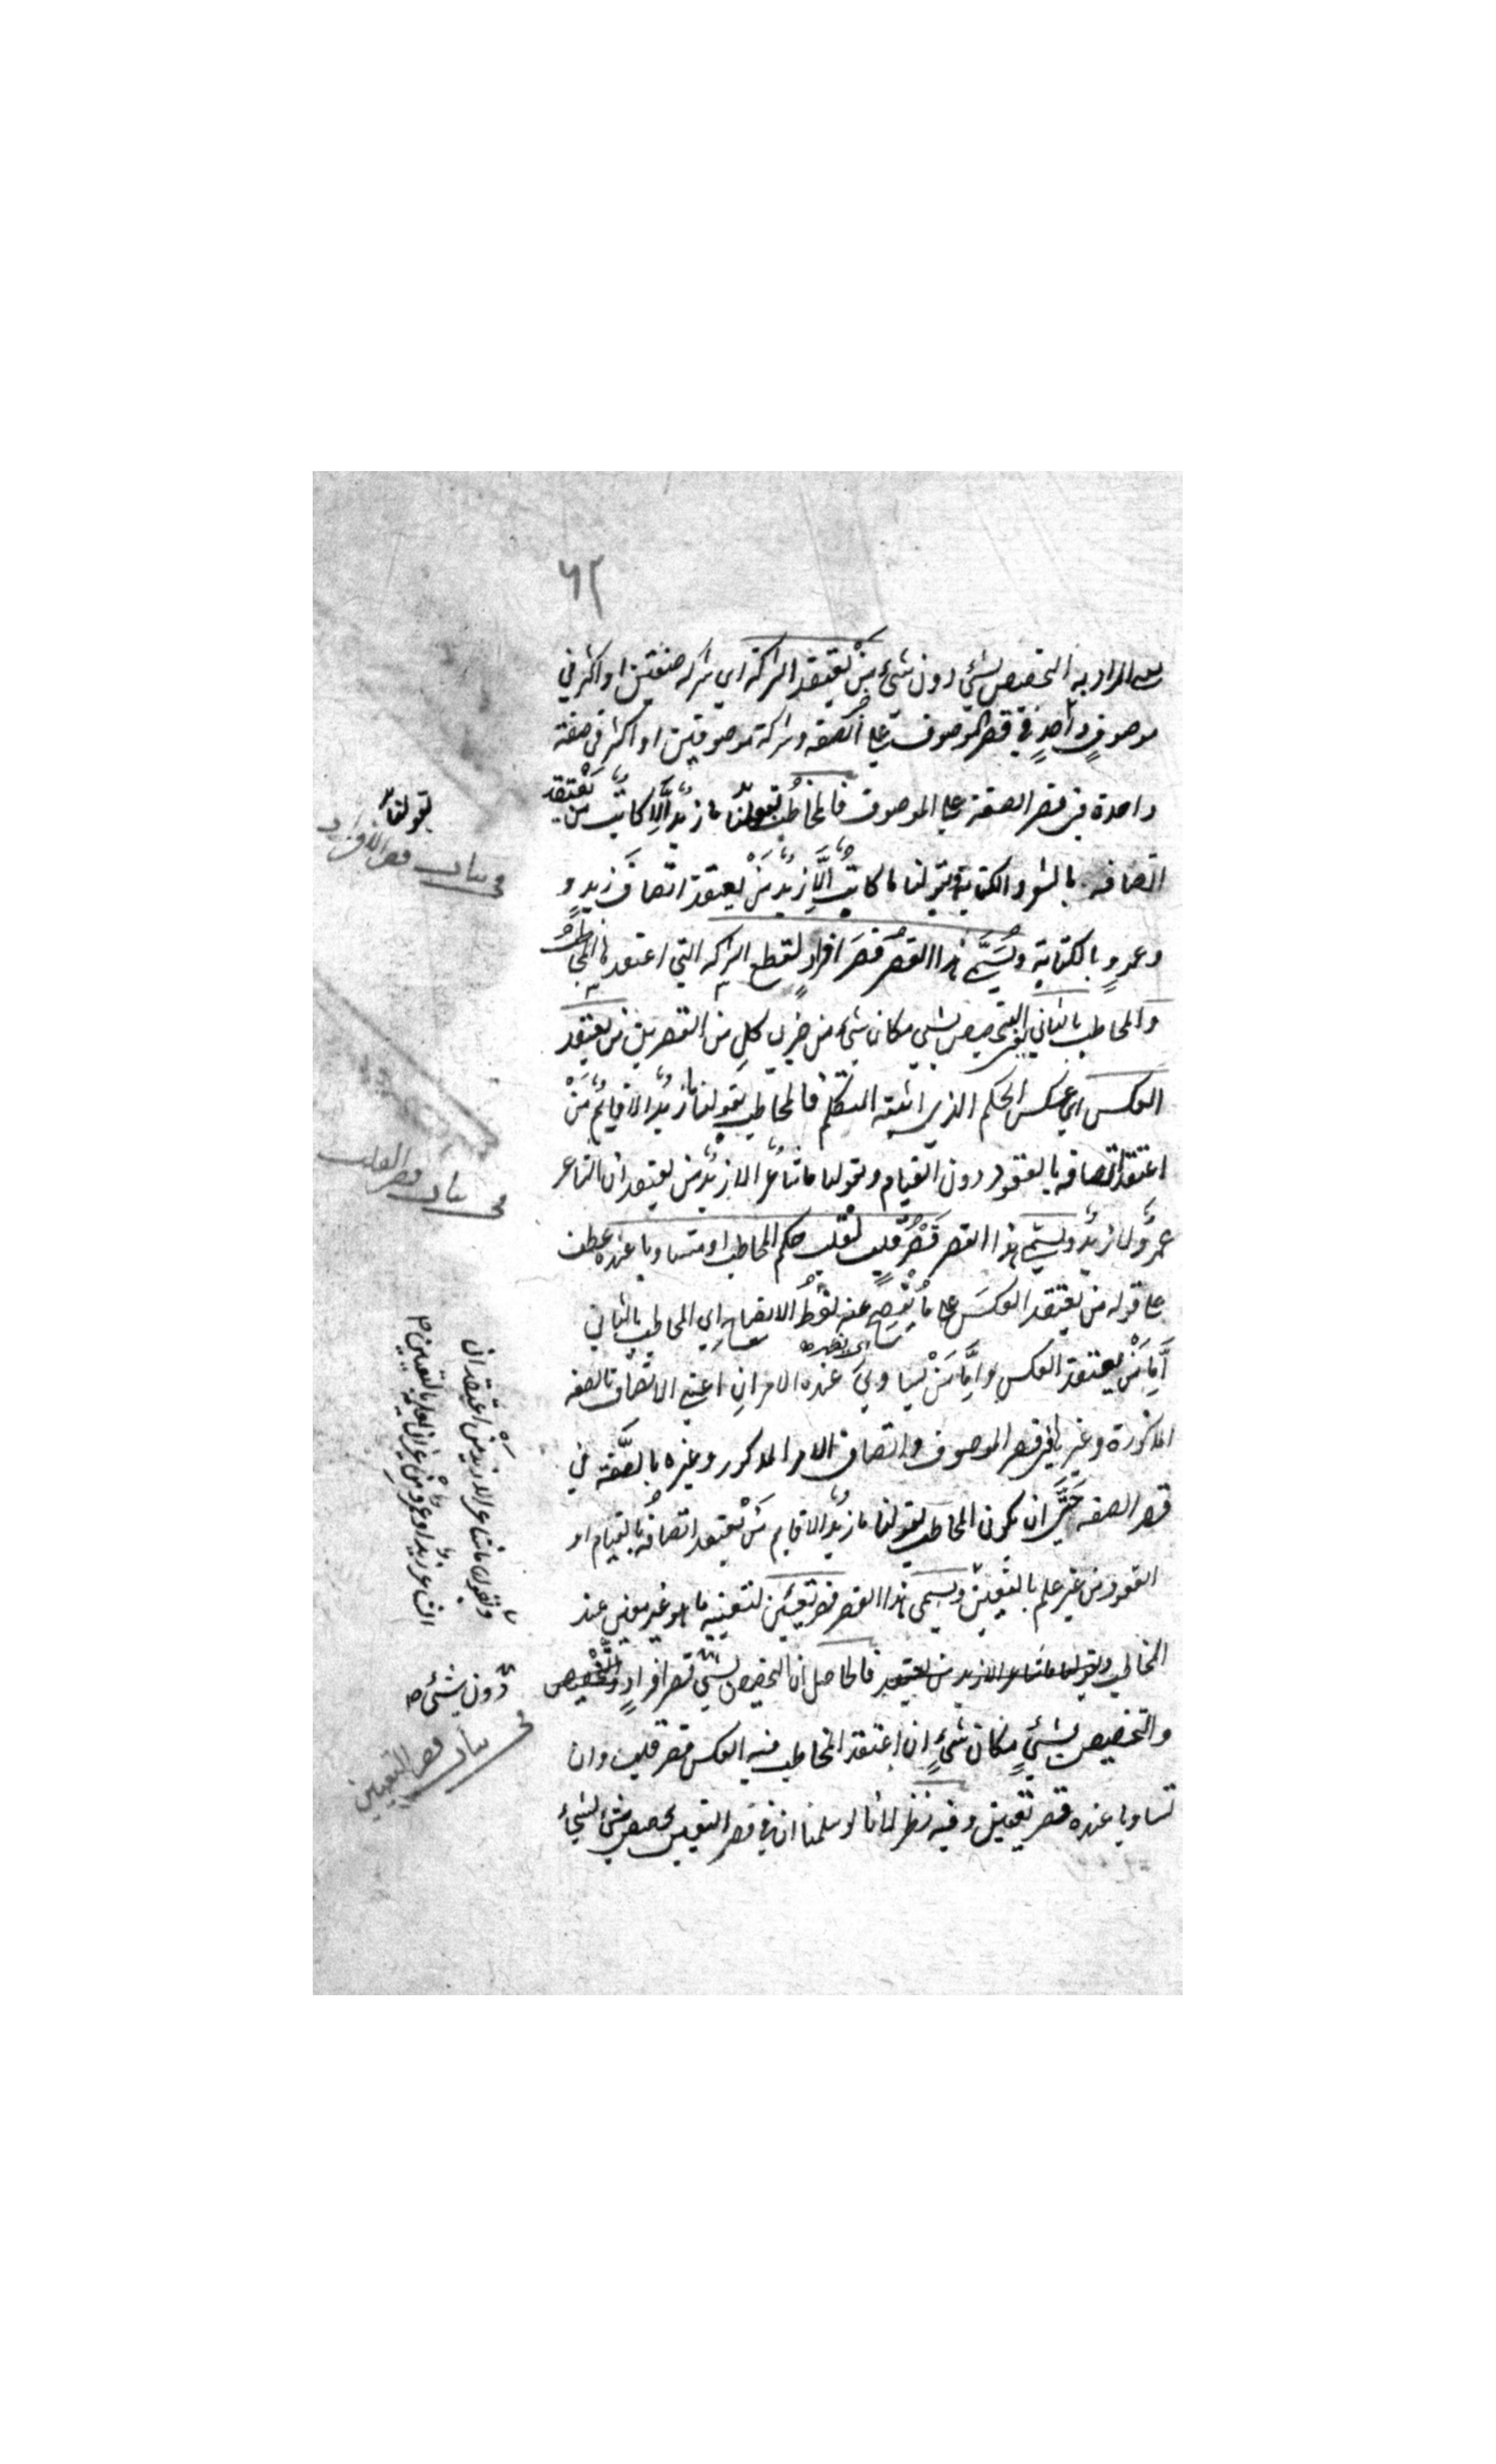 ٦٢
المراد به التخصيص بشئ دون شئ من يعتقد الشركة اي شركة صفتين او اكثر في
موصوف واحد في قصر الموصوف على الصفة وشركة موصوفين او اكثر في صفة
واحدة في قصر الصفة على الموصوف فالمخاطب بقولنا ما زيد الا كاتب من يعتقد
اتصافه بالشعر والكتابة وبقولنا ما كاتب الا زيد من يعتقد اتصاف زيد و
وعمرو بالكتابة ويسمى هذا القصر قصر افراد لقطع الشركة التي اعتقدها المخاطب
والمخاطب بالثاني اعني التخصيص بشئ مكان شئ من ضربي كل من القصرين من يعتقد
العكس اي عكس الحكم الذي اثبته المتكلم فالمخاطب بقولنا ما زيد الا قائم من
اعتقد اتصافه بالقعود دون القيام وبقولنا ما شاعر الا زيد من يعتقد ان الشاعر
عمرو لا زيد ويسمى هذا القصر قصر قلب لقلب حكم المخاطب او تساويا عنده عطف
على قوله من يعتقد العكس على ما يفصح عنه لفظ الايضاح اي المخاطب بالثاني
اما من يعتقد العكس واما من تساوى عنده الامران اعني الاتصاف بالصفة
المذكورة وغيرها في قصر الموصوف واتصاف الامر المذكور وغيره بالصفة في
قصر الصفة حتى ان يكون المخاطب بقولنا ما زيد الا قايم من يعتقد اتصافه بالقيام او
القعود من غير علم بالتعيين ويسمى هذا القصر قصر تعيين لتعيينه ما هو غير معين عند
المخاطب وبقولنا ما شاعر الا زيد من يعتقد فالحاصل ان التخصيص بشئ قصر افراد والتخصيص
والتخصيص بشئ مكان شئ ان اعتقد المخاطب فيه العكس قصر قلب وان
تساويا عنده قصر تعيين وفيه نظر لانا لو سلمنا ان في قصر التعيين تخصيص شئ بشئ
بقولنا
في بيان قصر الافراد
في بيان قصر القلب
وبقولنا ما شاعر الا زيد من اعتقد ان
الشاعر زيد او عمرو من غير ان يعلمه بالتعيين
دون شئ
في بيان قصر التعيين